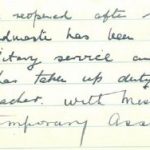 reopened after
dmaste has been
itary service an
has taken up duty
acher. With Mis
mporary Ass